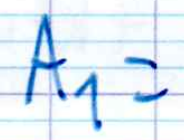 A₁ =